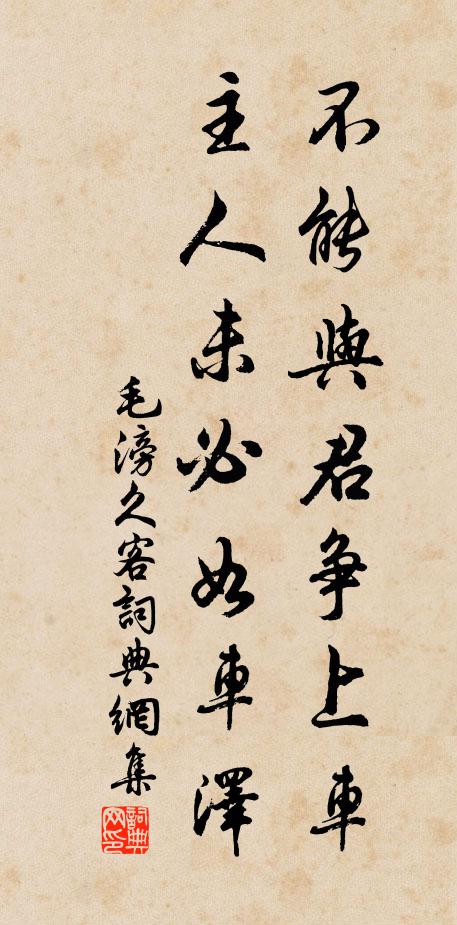 不能與君争上車
主人未必如車澤
毛滂久客詞典網集
詞典网印